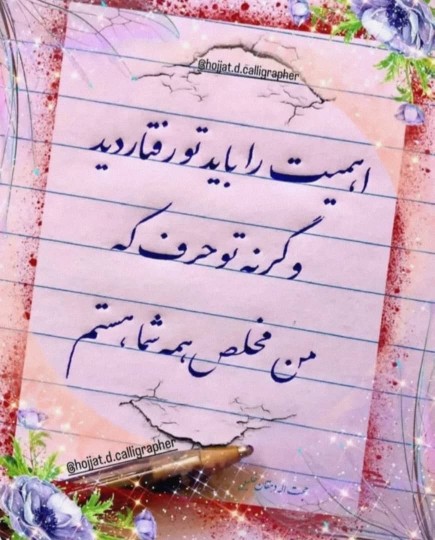 @hojjat.d.calligrapher
اهمیت را باید تو رفتار دید
وگرنه تو حرف که
من مخلص همه شما هستم
@hojjat.d.calligrapher